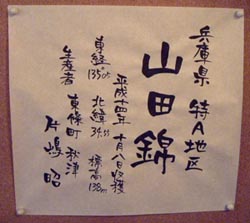 兵庫県 特A地区
山田錦
平成十四年 十月八日収穫
東経135°05′ 北緯34.55 標高138m
生産者 東條町 秋津
片嶋 昭